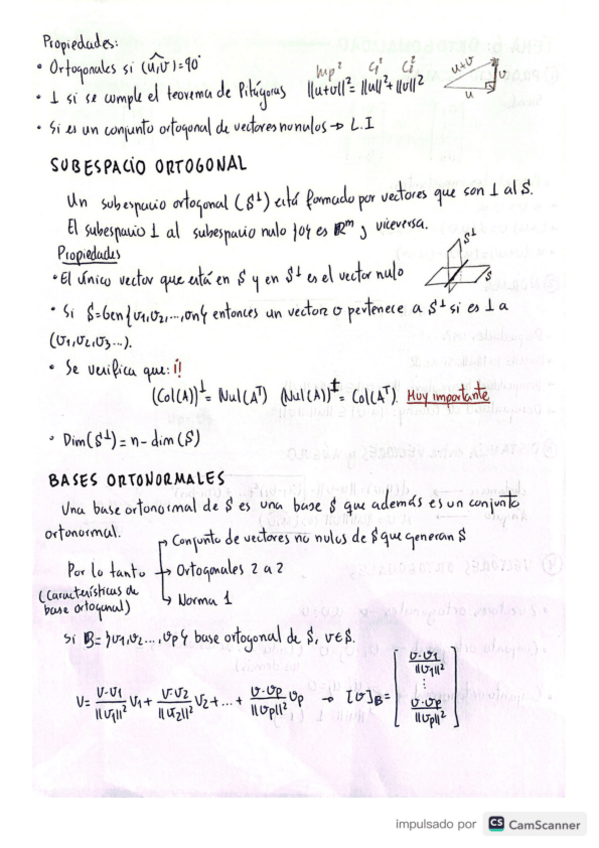 Propiedades:
• Ortogonales si (u,v)=90°
• ⊥ si se cumple el teorema de Pitágoras ||u+v||²=||u||²+||v||²
hip² c₁² c₂²
u+v v
u
• Si es un conjunto ortogonal de vectores no nulos → L.I
SUBESPACIO ORTOGONAL
Un subespacio ortogonal (S⊥) está formado por vectores que son ⊥ al S.
El subespacio ⊥ al subespacio nulo {0} es ℝᵐ y viceversa.
Propiedades
S⊥
S
• El único vector que está en S y en S⊥ es el vector nulo
• Si S=Gen{v1,v2,...,vn} entonces un vector v pertenece a S⊥ si es ⊥ a
(v1,v2,v3...).
• Se verifica que: ¡!
(Col(A))⊥= Nul(Aᵀ) (Nul(A))⊥= Col(Aᵀ). Muy importante
• Dim(S⊥)= n- dim(S)
BASES ORTONORMALES
Una base ortonormal de S es una base S que además es un conjunto
ortonormal.
Por lo tanto
(Características de
base ortogonal)
→ Conjunto de vectores no nulos de S que generan S
→ Ortogonales 2 a 2
→ Norma 1
Si B={v1,v2...,vp} base ortogonal de S, v∈S.
v= v·v1/||v1||² v1 + v·v2/||v2||² v2 +...+ v·vp/||vp||² vp → [v]B = [v·v1/||v1||² ⋮ v·vp/||vp||²]
impulsado por CS CamScanner